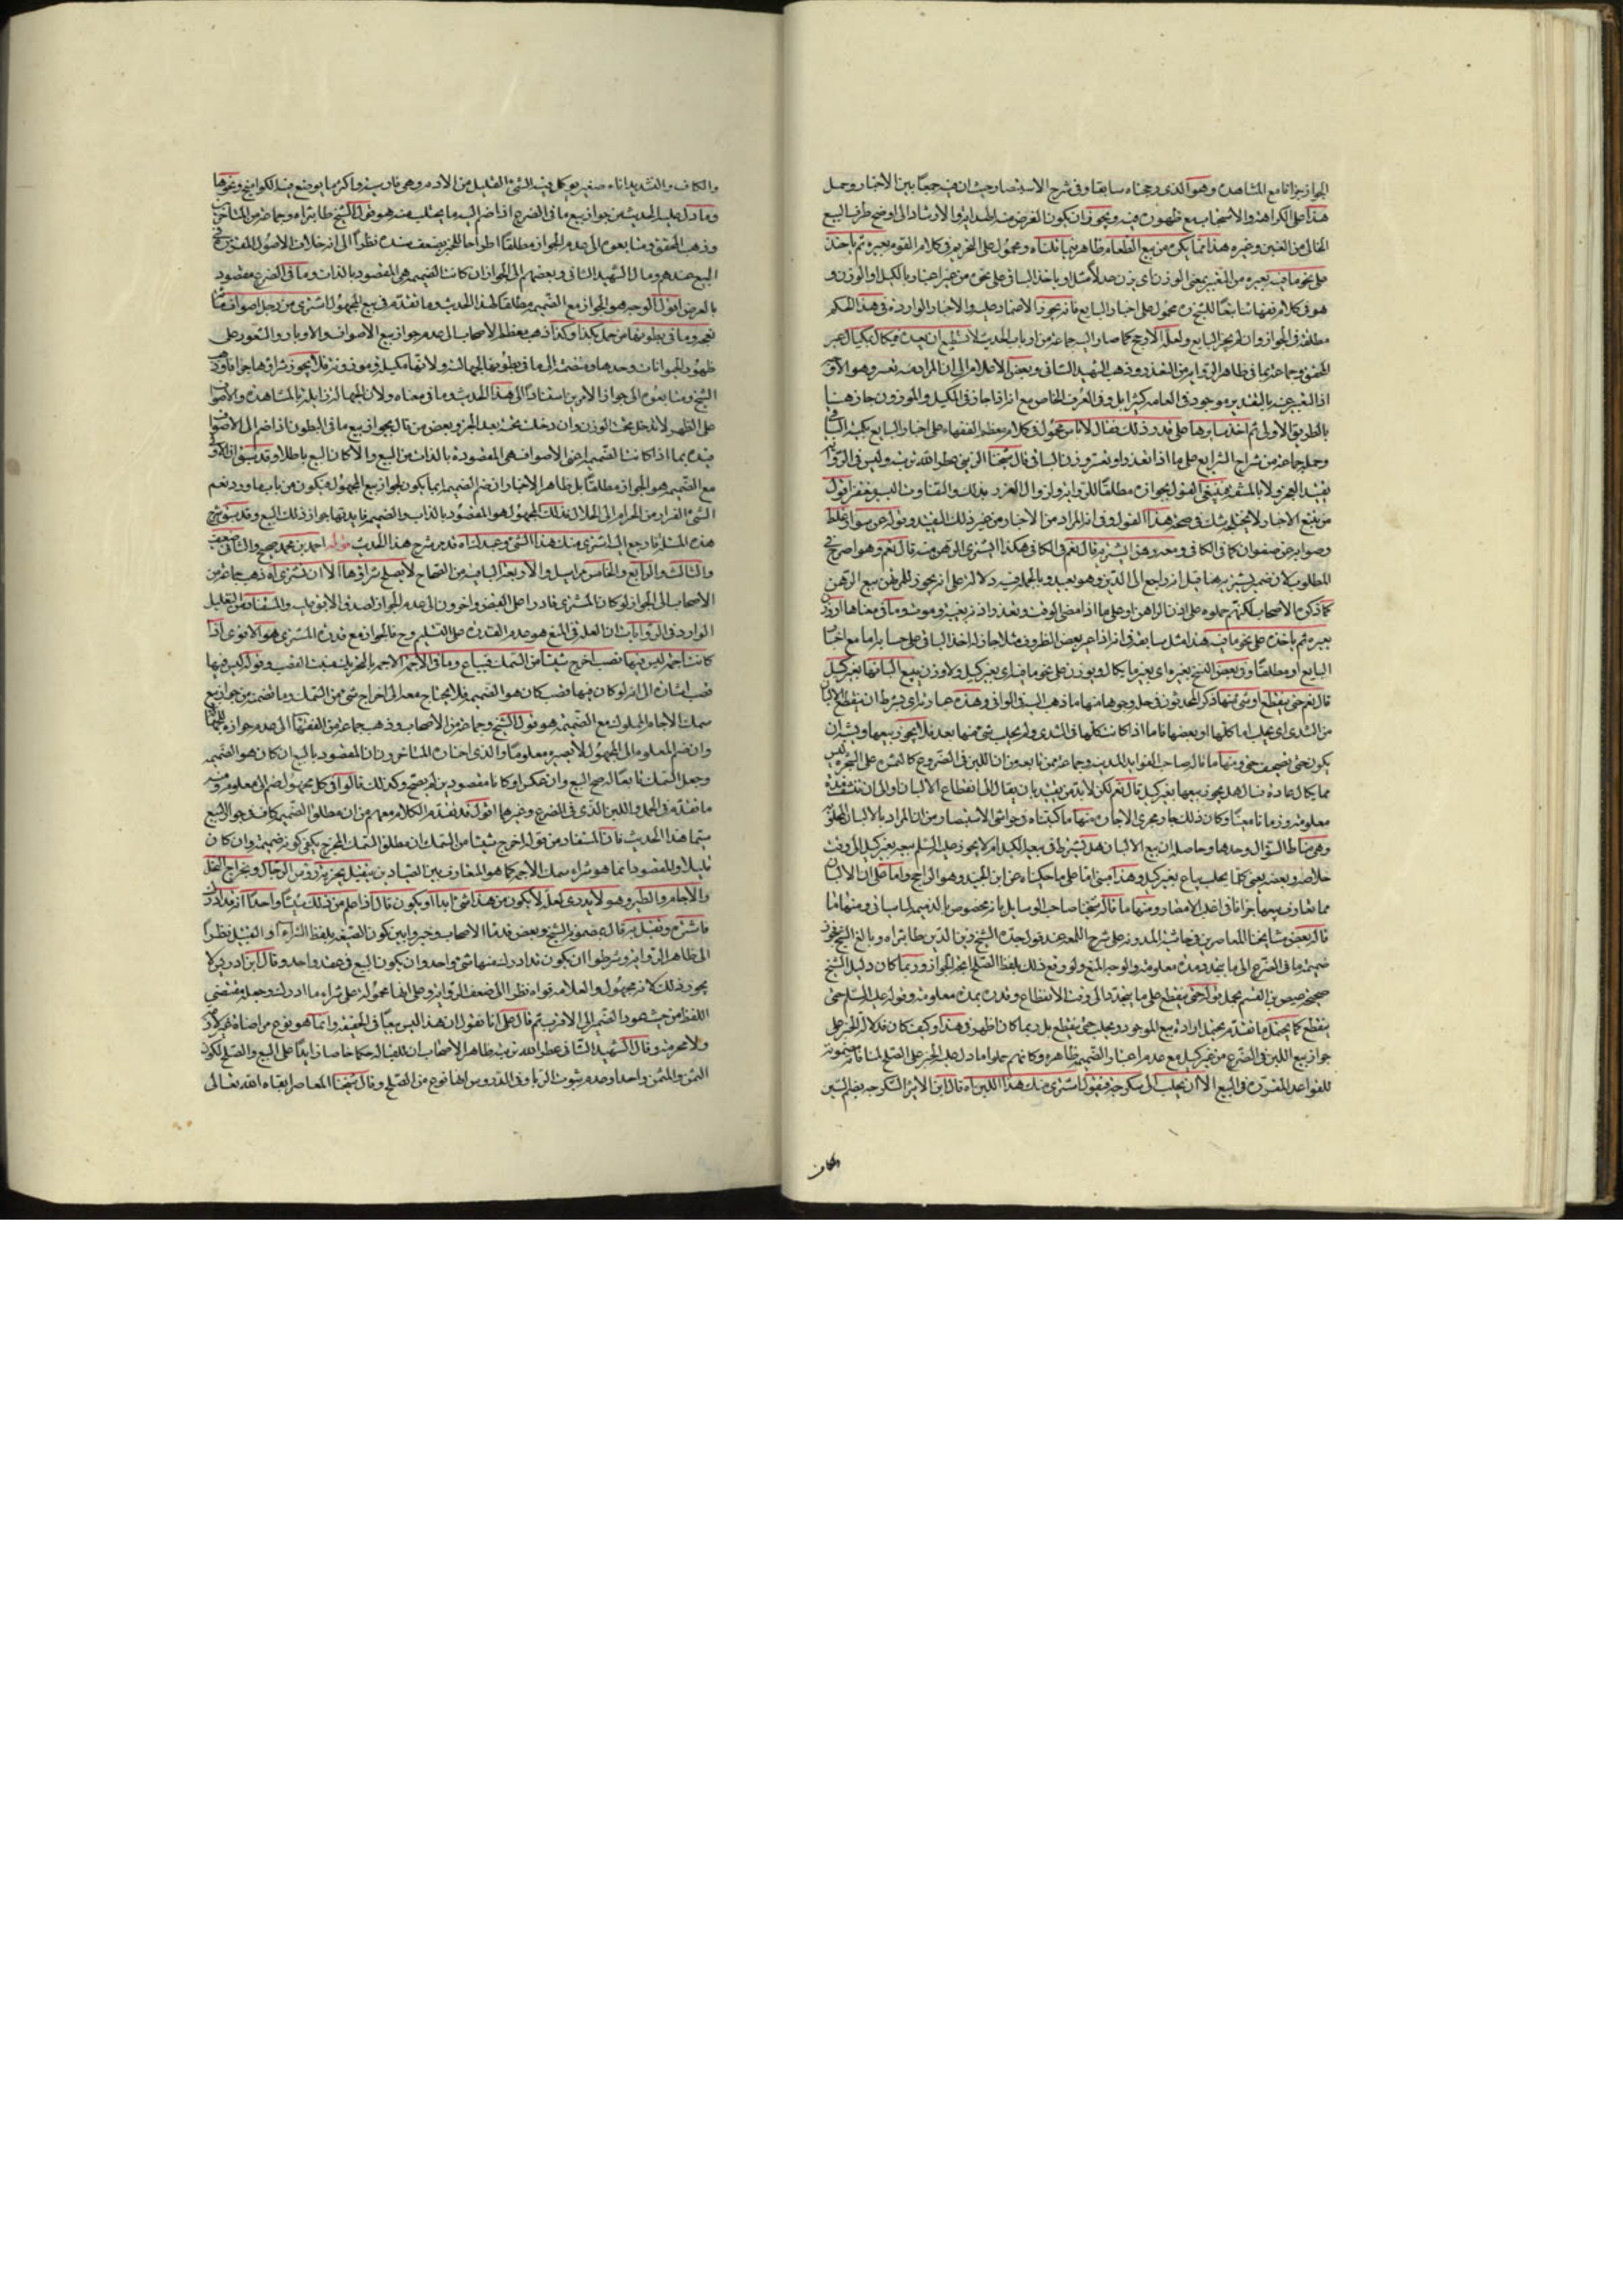 الجواز جزافا مع المشاهدة وهو الذى رجحناه سابقا وفى شرح الاستبصار حيث ان فيه جمعا بين الاخبار وحمل
هذا على الكراهة والاستحباب مع ظهوره فيه ويجوز ان يكون الغرض منه الهداية والارشاد الى اوضح طرق البيع
الخالى من الغبن وغيره هذا مما يكره من بيع الطعام ظاهر فيما قلناه ومحمول على التحريم فى كلام القوم بعيره ثم ياخذ
على نحو ما فيه بعيره من التعبير بمعنى الوزن اى يزن عدلا مثلا وياخذ الباقى على نحوه من غير اعتبار بالكيل او الوزن و
هو فى كلام فقهائنا تبعا للشيخ ره محمول على اخبار البايع فانه يجوز الاعتماد عليه والاخبار الواردة فى هذا الحكم
مطلقة فى الجواز وان لم يخبر البايع ولعله الارجح كما صار اليه جماعة من ارباب الحديث لا نستطيع ان نعده فيكال بمكيال عبر
المحقق وجماعة بما فى ظاهر الرواية من التعذر وذهب الشهيد الثانى وبعض الاعلام الى ان المراد منه تعسر وهو الاقوى
اذ التعبير عنه بالتعذر موجود فى العام كثيرا بل وفى العرف الخاص مع انه اذا جاز فى المكيل والموزون جاز هنا
بالطريق الاولى ثم اخذ سايرها على قدر ذلك فقال لا باس محمول فى كلام معظم الفقهاء على اخبار البايع بكيله الباقى
وحمله جماعة من شراح الشرايع على ما اذا تعذر او تعسر وزن الباقى قال شيخنا الزينى عطر الله تربته وليس فى الرواية
تقييد بالعجز ولا بالمشقة فينبغى القول بجوازه مطلقا للرواية ولزوال الغرر بذلك والتفاوت اليسير مغتفر اقول
من تتبع الاخبار لا يختلجه شك فى صحة هذا القول وفى انه المراد من الاخبار من غير ذلك التقييد وقوله عن سوار غلط
وصوابه عن صفوان كما فى الكافى ومعه رهن ايشتريه قال نعم فى الكافى هكذا ايشترى الرهن منه قال نعم وهو اصرح فى
المطلوب لان ضمير يشتريه هنا قيل انه راجع الى الدين وهو بعيد وبالجملة فيه دلالة على انه يجوز للمرتهن بيع الرهن
كما ذكره الاصحاب لكنهم حملوه على اذن الراهن او على ما اذا مضى الوقت وتعذر اذنه بغيبة وموت وما فى معناها او زن
بعيره ثم ياخذه على نحو ما فيه هذا مثل سابقه فى انه اذا عير بعض الظروف مثلا جاز له اخذ الباقى على حسابه اما مع اخبار
البايع او مطلقا وفى بعض النسخ بغيره اى بغير ما يكال ويوزن على نحو ما فيه اى بغير كيل ولا وزن يبيع البانها بغير كيل
قال نعم حتى ينقطع او شئ منها ذكر المحدثون فى حله وجوها منها ما ذهب اليه فى الوافى وهذه عبارته اى بشرط ان ينقطع الالبان
من الثدى اى يحلب اما كلها او بعضها فاما اذا كانت كلها فى الثدى ولم يحلب شئ منها بعد فلا يجوز بيعها ويشبه ان
يكون حتى تصحيف متى ومنها ما قاله صاحب الفوايد المدنية وجماعة ممن تابعه من ان اللبن فى الضروع كالثمرة على الشجرة ليس
مما يكال عادة فسال هل يجوز بيعها بغير كيل قال نعم لكن لا بد من تقييده بان يقال الى انقطاع الالبان او الى ان تنتصف مدة
معلومة وزمانا معينا وكان ذلك جار مجرى الاجارة ومنها ما كتبناه فى حواشى الاستبصار من ان المراد بالالبان المحلوبة
وهى مناط السؤال وحدها وحاصله ان بيع الالبان هل يشترط فيه الكيل ام لا يجوز عليه السلم بيعه بغير كيل الى وقت
خلاصه وبعضه يعنى كلما يحلب يباع بغير كيل وهذا مبنى اما على ما حكيناه عن ابن الجنيد وهو الراجح واما على ان الالبان
مما تعارف بيعها جزافا فى اغلب الامصار ومنها ما قاله شيخنا صاحب الوسايل بانه مخصوص بالضميمة لما سياتى ومنها ما
قاله بعض مشايخنا المعاصرين فى حاشيته المدونة على شرح اللمعة عند قول جده الشيخ زين الدين طاب ثراه وبالغ الشيخ فجوز
ضميمة ما فى الضرع الى ما يتجدد مدة معلومة والوجه المنع ولو وقع ذلك بلفظ الصلح اتجه الجواز وربما كان دليل الشيخ
صحيحة عيص بن القسم بحمل قوله حتى ينقطع على ما يتجدد الى وقت الانقطاع وقدره بمدة معلومة وقوله عليه السلم حتى
ينقطع كما يحتمل ما تقدم يحتمل ارادة بيع الموجود ويحلب حتى ينقطع بل ربما كان اظهر وهذا وكيف كان فدلالة الخبر على
جواز بيع اللبن فى الضرع من غير كيل مع عدم اعتبار الضميمة ظاهرة وكانهم حملوا ما دل عليه الخبر على الصلح لمنافاة مضمونه
للقواعد المقررة فى البيع الا ان يحلب الى سكرجة فيقول اشترى منك هذا اللبن اه قال ابن الاثير السكرجة بضم السين
والكاف
والكاف والتشديد اناء صغير يوكل فيه الشئ القليل من الادم وهى فارسية واكثر ما يوضع فيه الكوامخ ونحوها
وما دل عليه الحديث من جواز بيع ما فى الضرع اذا ضم اليه ما يحتلب منه هو قول الشيخ طاب ثراه وجماعة من المتاخرين
وذهب المحقق ومتابعوه الى عدم الجواز مطلقا اطراحا للخبر بضعف سنده نظرا الى انه خلاف الاصول المقررة فى
البيع عندهم ومال الشهيد الثانى وبعضهم الى الجواز ان كانت الضميمة هى المقصود بالذات وما فى الضرع مقصود
بالعرض اقول الوجه هو الجواز مع الضميمة مطلقا لهذا الحديث وما تقدم فى بيع المجهول اشترى من رجل اصواف مائة
نعجة وما فى بطونها من حمل بكذا وكذا ذهب معظم الاصحاب الى عدم جواز بيع الاصواف والاوبار والشعور على
ظهور الحيوانات وحدها ومنضمة الى ما فى بطونها لجهالته ولانها مكيل او موزونة فلا يجوز شراؤها جزافا وذهب
الشيخ ومتابعوه الى جواز الامرين استنادا الى هذا الحديث وما فى معناه ولان الجهالة زايلة بالمشاهدة والاصواف
على الظهر لا تدخل تحت الوزن وان دخلت تحته بعد الجز وبعض من قال بجواز بيع ما فى البطون اذا ضم الى الاصواف
قيده بما اذا كانت الضميمة اعنى الاصواف هى المقصودة بالذات من البيع والا كان البيع باطلا وقد سبق ان الاقوى
مع الضميمة هو الجواز مطلقا بل ظاهر الاخبار ان ضم الضميمة انما يكون لجواز بيع المجهول فيكون من باب ما ورد نعم
الشئ الفرار من الحرام الى الحلال فذلك المجهول هو المقصود بالذات والضميمة فايدتها جواز ذلك البيع وقد سبق شرح
هذه المسئلة فارجع اليه اشترى منك هذا الشئ وعبدك اه قد مر شرح هذا الحديث قوله احمد بن محمد صحيح والثانى ضعيف
والثالث والرابع والخامس مراسيل والاربعة الباقية من الصحاح لا يصلح شراؤها الا ان تشترى اه ذهب جماعة من
الاصحاب الى الجواز لو كان المشترى قادرا على القبض واخرون الى عدم الجواز لصدق الابق عليه والمستفاد من التعليل
الوارد فى الروايات ان العلة فى المنع هو عدم القدرة على التسليم وح فالجواز مع قدرة المشترى هو الاقوى اذا
كانت اجمة ليس فيها قصب اخرج شيئا من السمك فيباع وما فى الاجمة الاجمة بالتحريك منبت القصب وقوله ليس فيها
قصب اشارة الى انه لو كان فيها قصب كان هو الضميمة فلا يحتاج معه الى اخراج شئ من السمك وما تضمنه من جواز بيع
سمك الاجام المملوك مع الضميمة هو قول الشيخ وجماعة من الاصحاب وذهب جماعة من الفقهاء الى عدم جوازه للجهالة
وان ضم المعلوم الى المجهول لا يصيره معلوما والذى اختاره المتاخرون ان المقصود بالبيع ان كان هو الضميمة
وجعل السمك تابعا له صح البيع وان عكس او كانا مقصودين لم يصح وكذلك قالوا فى كل مجهول ضم الى معلوم ومنه
ما تقدم فى الحمل واللبن الذى فى الضرع وغيرهما اقول قد تقدم الكلام معهم من ان مطلق الضميمة كاف فى جواز البيع
سيما هذا الحديث فان المستفاد من قوله اخرج شيئا من السمك ان مطلق السمك المخرج يكفى كونه ضميمة وان كان
قليلا والمقصود انما هو شراء سمك الاجمة كما هو المتعارف بين الصيادين يتقبل بجزية رؤس الرجال وبخراج النخل
والاجام والطير وهو لا يدرى لعله لا يكون من هذا شئ ابدا او يكون قال اذا علم من ذلك شيئا واحدا انه قد ادرك
فاشتره وتقبل به قال بمضمونه الشيخ وبعض قدماء الاصحاب وخيروا بين كون الصيغة بلفظ الشراء او التقبيل نظرا
الى ظاهر الرواية وشرطوا ان يكون قد ادرك منها شئ واحد وان يكون البيع فى عقد واحد وقال ابن ادريس لا
يجوز ذلك لانه مجهول والعلامة قواه نظرا الى ضعف الرواية وعلى انها محمولة على شراء ما ادرك وجعله مقتضى
اللفظ من حيث عود الضمير الى الاقرب ثم قال على انا نقول ان هذا ليس بيعا فى الحقيقة وانما هو نوع مراضاة غير لازمة
ولا محرمة وقال الشهيد الثانى عطر الله تربته ظاهر الاصحاب ان للقبالة حكما خاصا زايدا على البيع والصلح لكون
الثمن والمثمن واحدا وعدم ثبوت الربا وفى الدروس انها نوع من الصلح وقال شيخنا المعاصر ابقاه الله تعالى